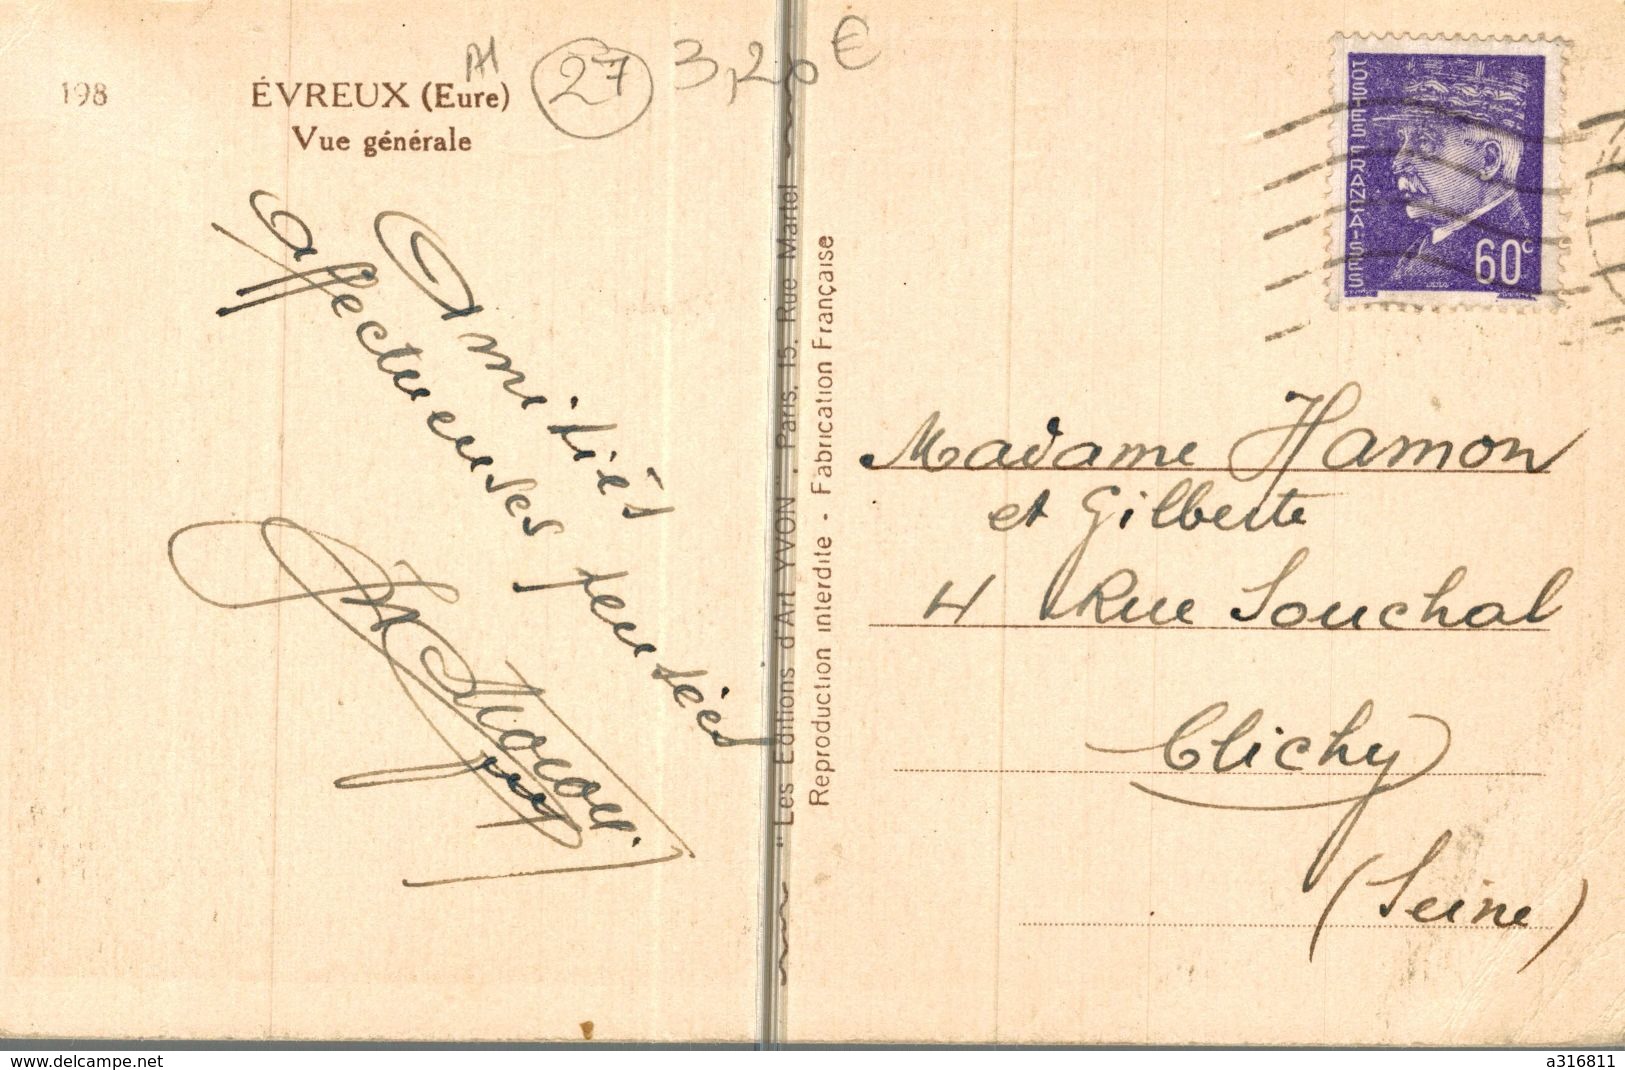 198
ÉVREUX (Eure)
Vue générale
27
3,20 €
Amitiés
affectueuses pensées
"Les Editions d'Art YVON", Paris, 15, Rue Martel
Reproduction interdite - Fabrication Française
POSTES FRANÇAISES
60c
Madame Hamon
et Gilberte
4 Rue Souchal
Clichy
(Seine)
www.delcampe.net
a316811